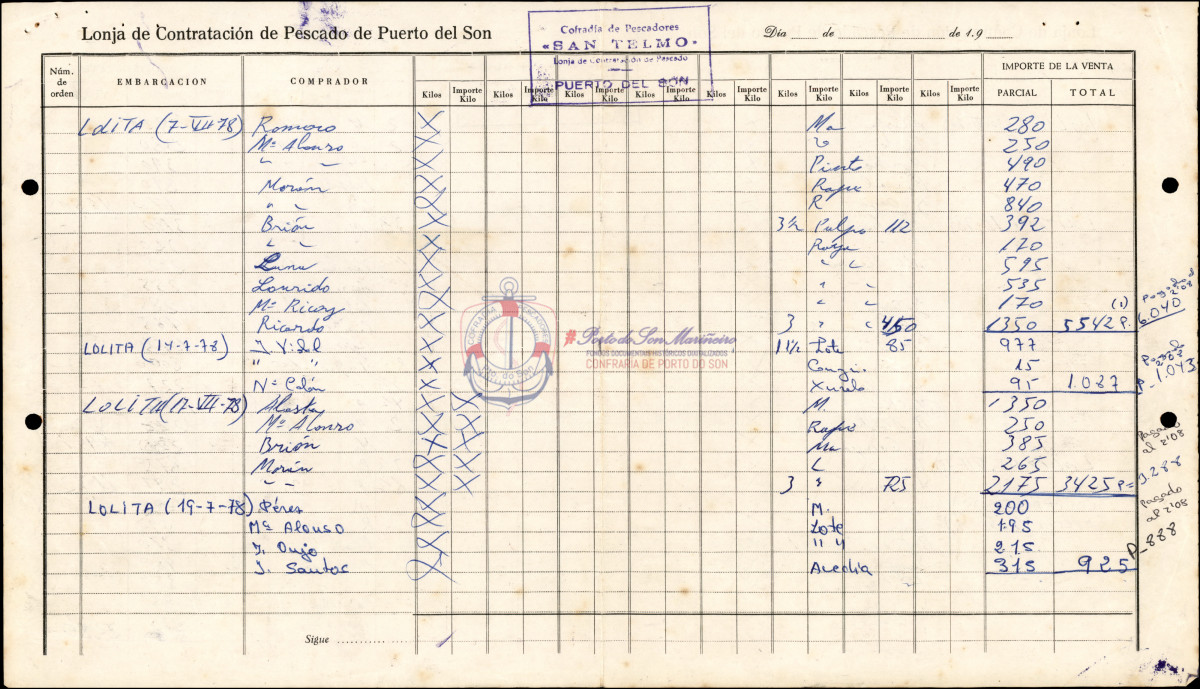 Lonja de Contratación de Pescado de Puerto del Son
Cofradía de Pescadores
«SAN TELMO»
Lonja de Contratación de Pescado
PUERTO DEL SON
Día de de 19
Núm. de orden EMBARCACION COMPRADOR Kilos Importe Kilo Kilos Importe Kilo Kilos Importe Kilo Kilos Importe Kilo Kilos Importe Kilo Kilos Importe Kilo Kilos Importe Kilo Kilos Importe Kilo IMPORTE DE LA VENTA PARCIAL TOTAL
LOLITA (7-VII-78) Romero Ma 280
Mª Alonso 250
" " Pinto 490
Morán Rape 470
" " R 840
Brión 3½ Pulpo 112 392
" " Raya 170
Luna " " 595
Lourido " " 535
Mª Ricoy " " 170 (1)
Ricardo 3 " " 450 1350 5542 P.
Pagado 2'08 6.040
LOLITA (14-7-78) J. Vidal 11½ Lote 85 977
" " 15
Nª Colón Xurelo 95 1.087
P_1.043
LOLITA (17-VII-78) M. 1350
Mª Alonso Rape 250
Brión Ma 385
Morán L 265
" " 3 " 725 2175 3425 P=
Pagado al 2'08
3.288
LOLITA (19-7-78) Pérez M. 200
Mª Alonso Lote 195
J. Dujo " " 215
J. Santos 315 925
Pagado al 2'08
P_888
#Porto do Son Mariñeiro
FONDOS DOCUMENTAIS HISTÓRICOS DIGITALIZADOS
CONFRARÍA DE PORTO DO SON
CONFRARÍA PESCADORES
Pto. do Son
Sigue